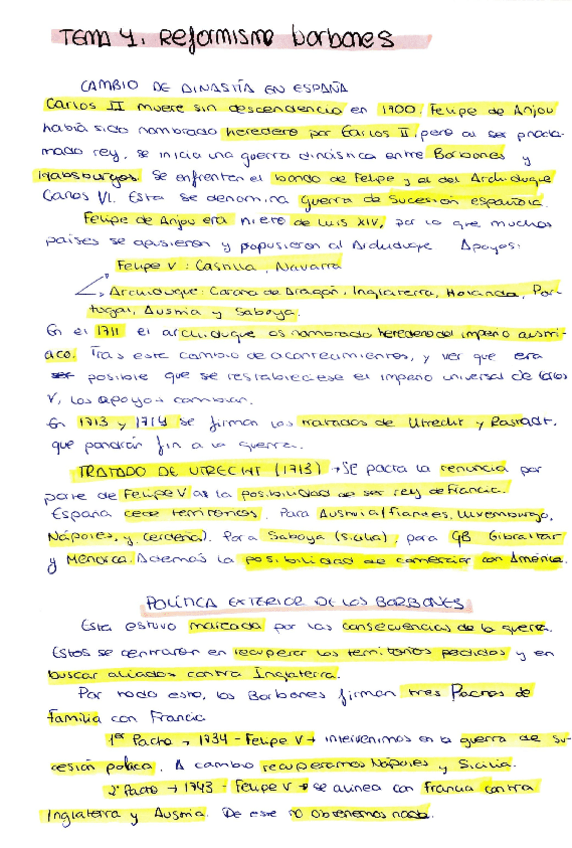 TEMA 4. Reformismo borbones
CAMBIO DE DINASTÍA EN ESPAÑA
Carlos II muere sin descendencia en 1700. Felipe de Anjou
había sido nombrado heredero por Carlos II, pero al ser procla-
mado rey, se inicia una guerra dinástica entre Borbones y
Habsburgos. Se enfrentan el bando de Felipe y al del Archiduque
Carlos VI. Esta se denomina Guerra de Sucesión española.
Felipe de Anjou era nieto de Luis XIV, por lo que muchos
países se opusieron y propusieron al Archiduque. Apoyos:
Felipe V: Castilla, Navarra
Archiduque: Corona de Aragón, Inglaterra, Holanda, Por-
tugal, Austria y Saboya.
En el 1711 el archiduque es nombrado heredero del imperio austri-
aco. Tras este cambio de acontecimientos, y ver que era
posible que se restableciese el imperio universal de Carlos
V, los apoyos cambian.
En 1713 y 1714 se firman los tratados de Utrecht y Rastadt,
que pondrán fin a la guerra.
TRATADO DE UTRECHT (1713) → Se pacta la renuncia por
parte de Felipe V a la posibilidad de ser rey de Francia.
España cede territorios. Para Austria (Flandes, Luxemburgo,
Nápoles, y Cerdeña). Para Saboya (Sicilia), para GB Gibraltar
y Menorca. Además la posibilidad de comerciar con América.
POLÍTICA EXTERIOR DE LOS BORBONES
Esta estuvo marcada por las consecuencias de la guerra.
Estos se centrarán en recuperar los territorios perdidos y en
buscar aliados contra Inglaterra.
Por todo esto, los Borbones firman tres Pactos de
Familia con Francia
1er Pacto → 1734 - Felipe V → intervenimos en la guerra de su-
cesión polaca. A cambio recuperamos Nápoles y Sicilia.
2º Pacto → 1743 - Felipe V → se alinea con Francia contra
Inglaterra y Austria. De este no obtenemos nada.